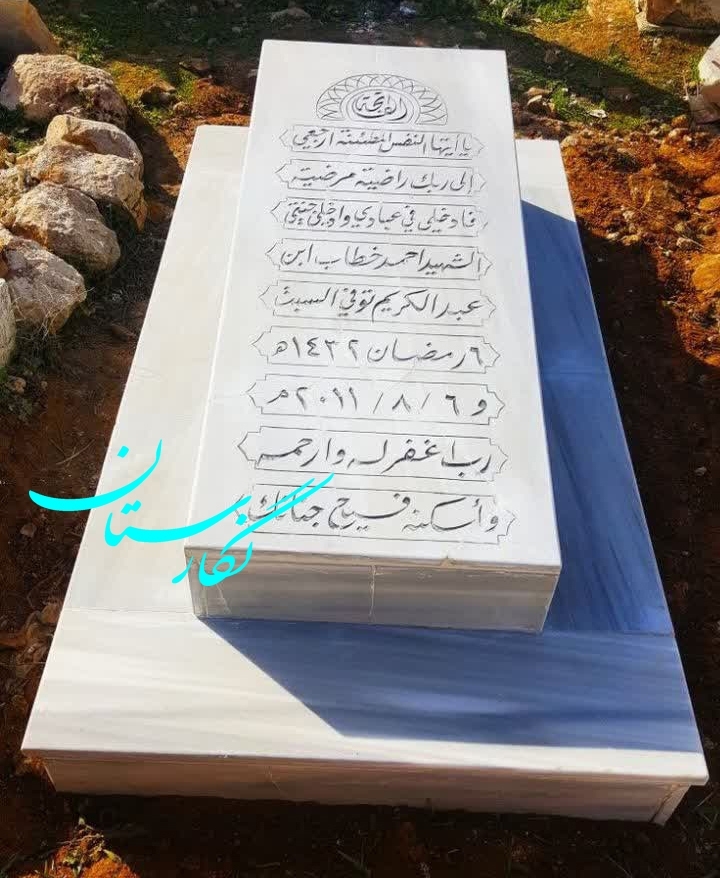 الفاتحة
يا ايتها النفس المطمئنة ارجعي
إلى ربك راضية مرضية
فادخلي في عبادي وادخلي جنتي
الشهيد احمد خطاب ابن
عبد الكريم توفي السبت
٦ رمضان ١٤٣٢هـ
و ٦ / ٨ / ٢٠١١م
رب اغفر له وارحمه
وأسكنه فسيح جناتك
نگارستان